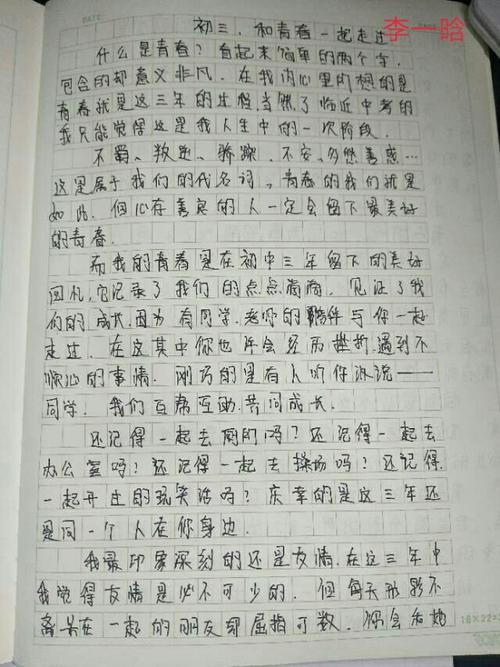 李一晗
DATE
初三，和青春一起走过
什么是青春？看起来简单的两个字，
包含的却意义非凡。在我内心里所想的是
青春就是这三年的过程，当然了临近中考的
我只能觉得这是我人生中的一次阶段。
不羁、叛逆、骄躁、不安、多愁善感…
这是属于我们的代名词，青春的我们就是
如此。但心存善良的人一定会留下最美好
的青春。
而我的青春是在初中三年留下的美好
回忆，它记录了我们的点点滴滴，见证了我
们的成长，因为有同学、老师的陪伴与你一起
走过。在这其中你也许会经历挫折，遇到不
顺心的事情。刚巧的是有人听你诉说——
同学。我们互帮互助，共同成长。
还记得一起去厕所吗？还记得一起去
办公室吗？还记得一起去操场吗？还记得
一起开过的玩笑话吗？庆幸的是这三年还
是同一个人在你身边。
我最印象深刻的还是友情，在这三年中
我觉得友情是必不可少的。但每天形影不
离呆在一起的朋友却屈指可数。你会和她